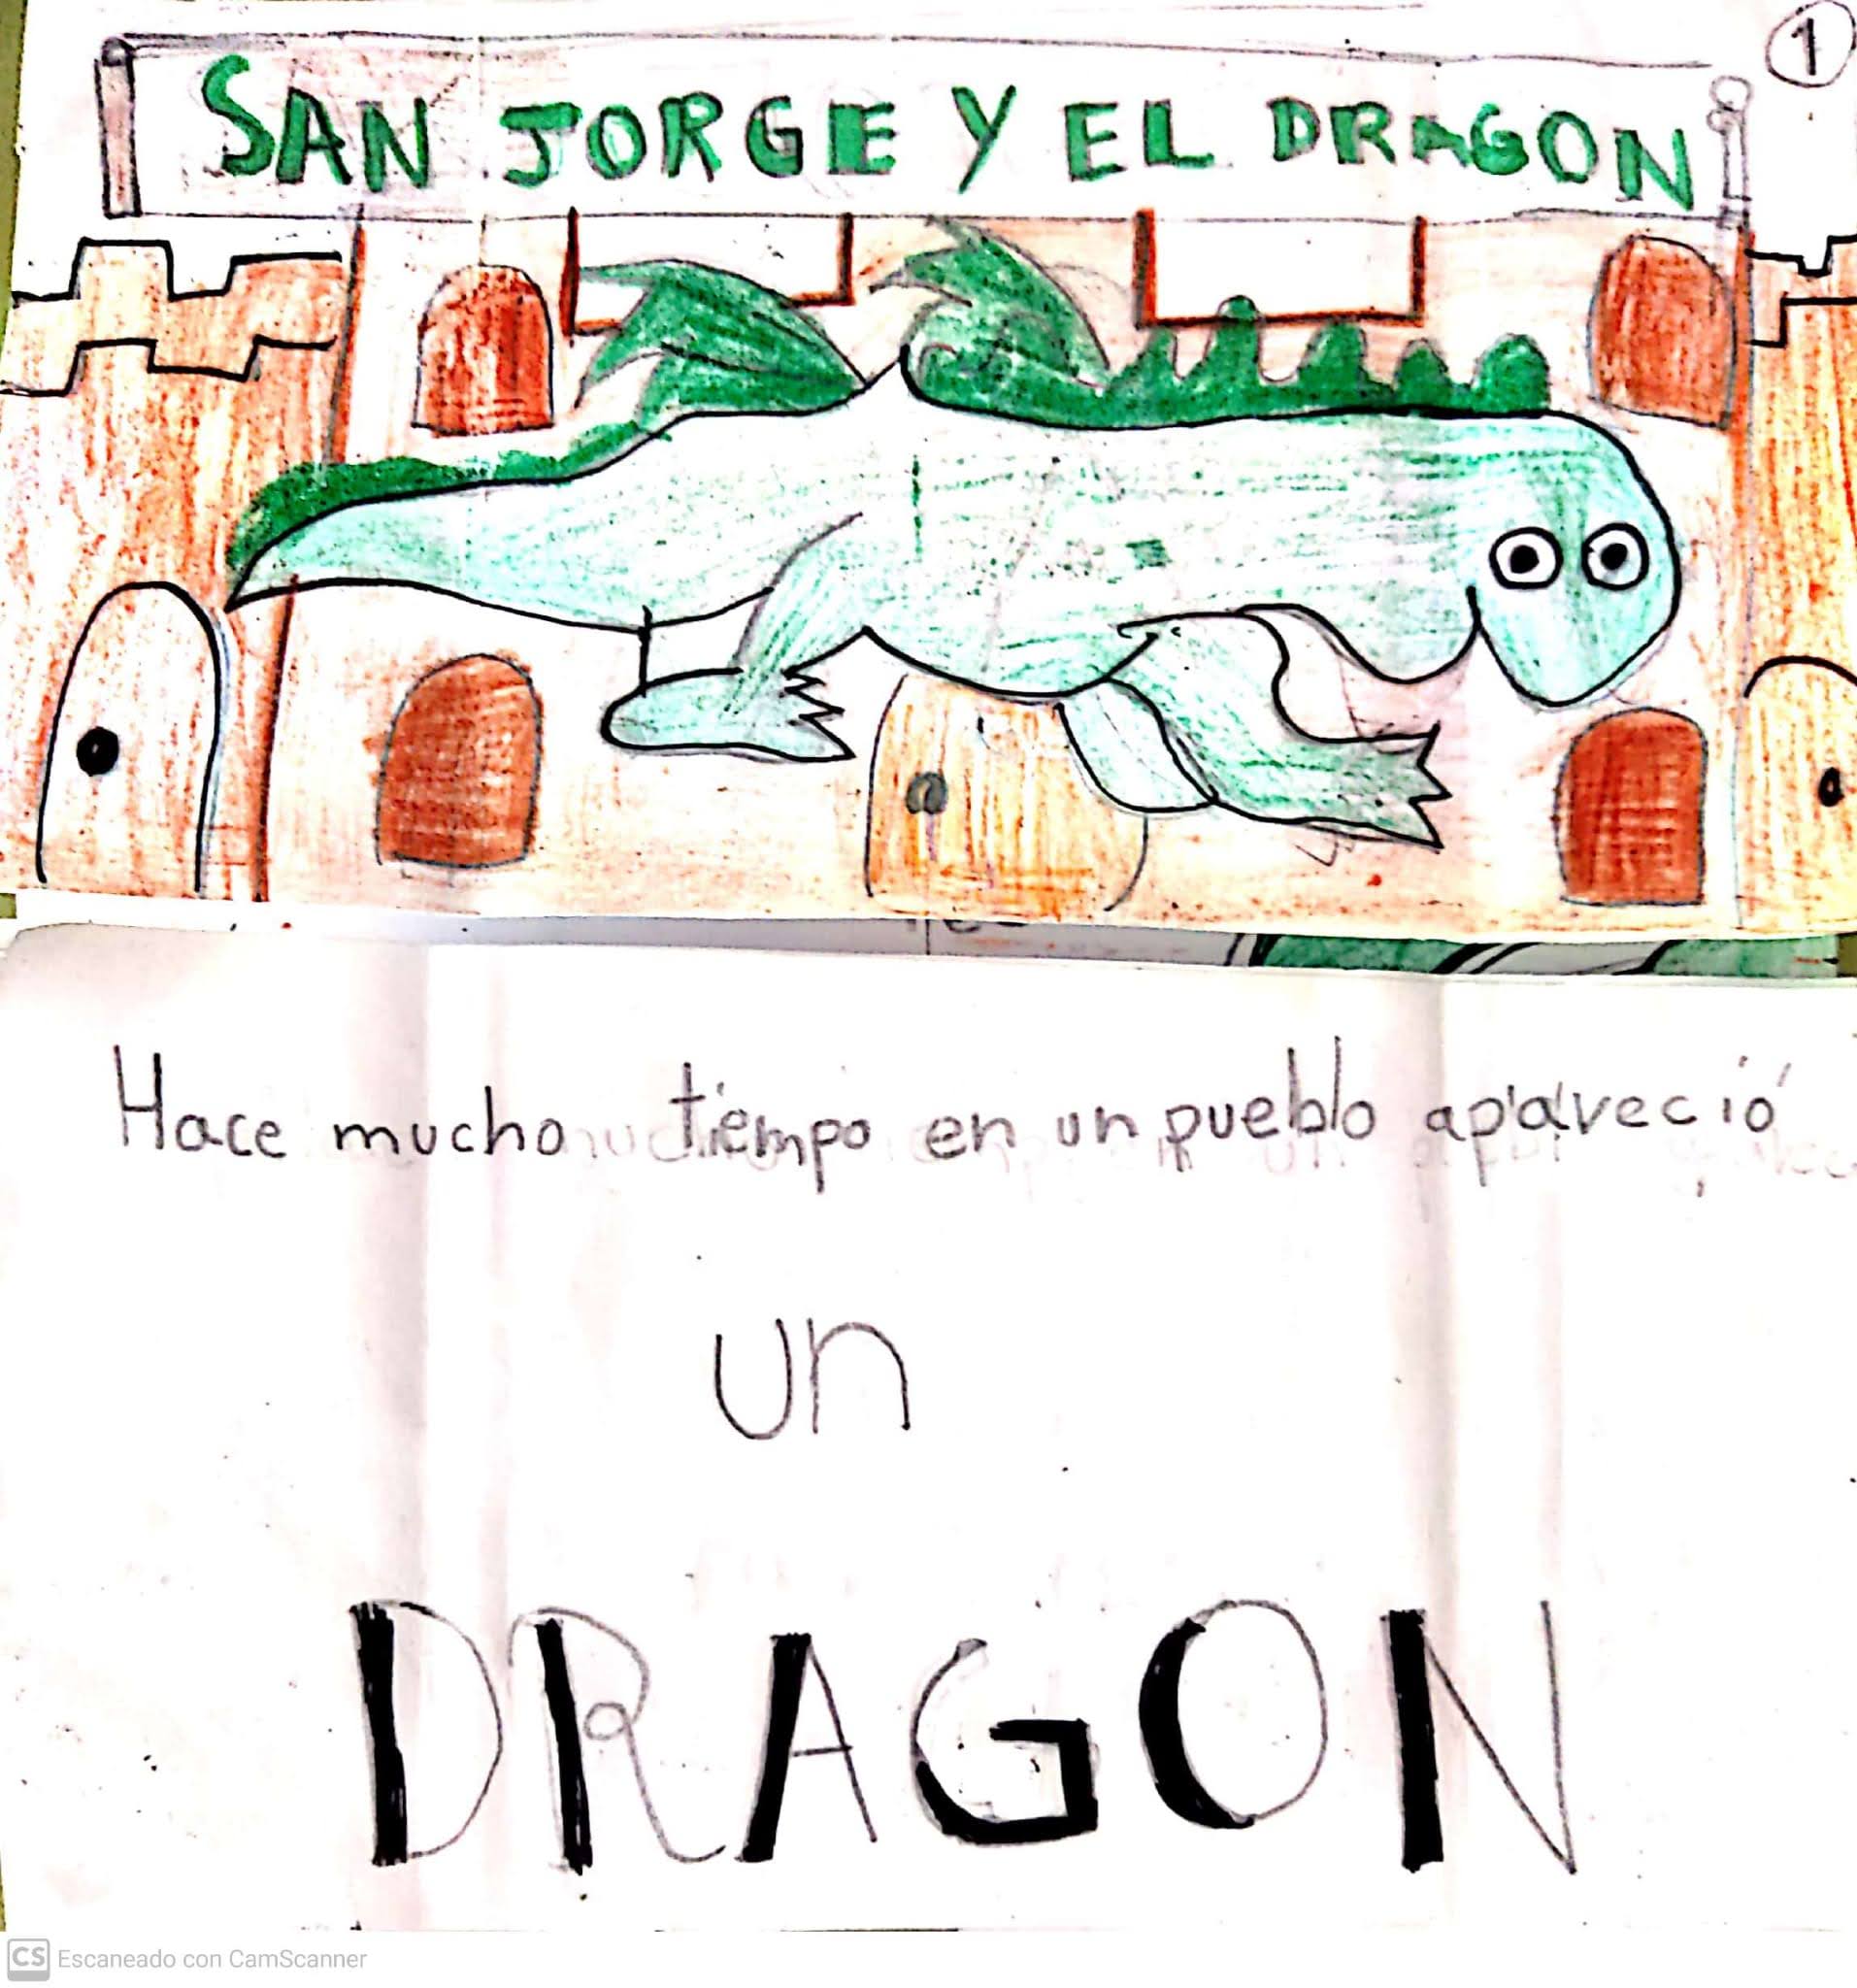 1
SAN JORGE Y EL DRAGON
Hace mucho tiempo en un pueblo apareció
un
DRAGON
CS Escaneado con CamScanner